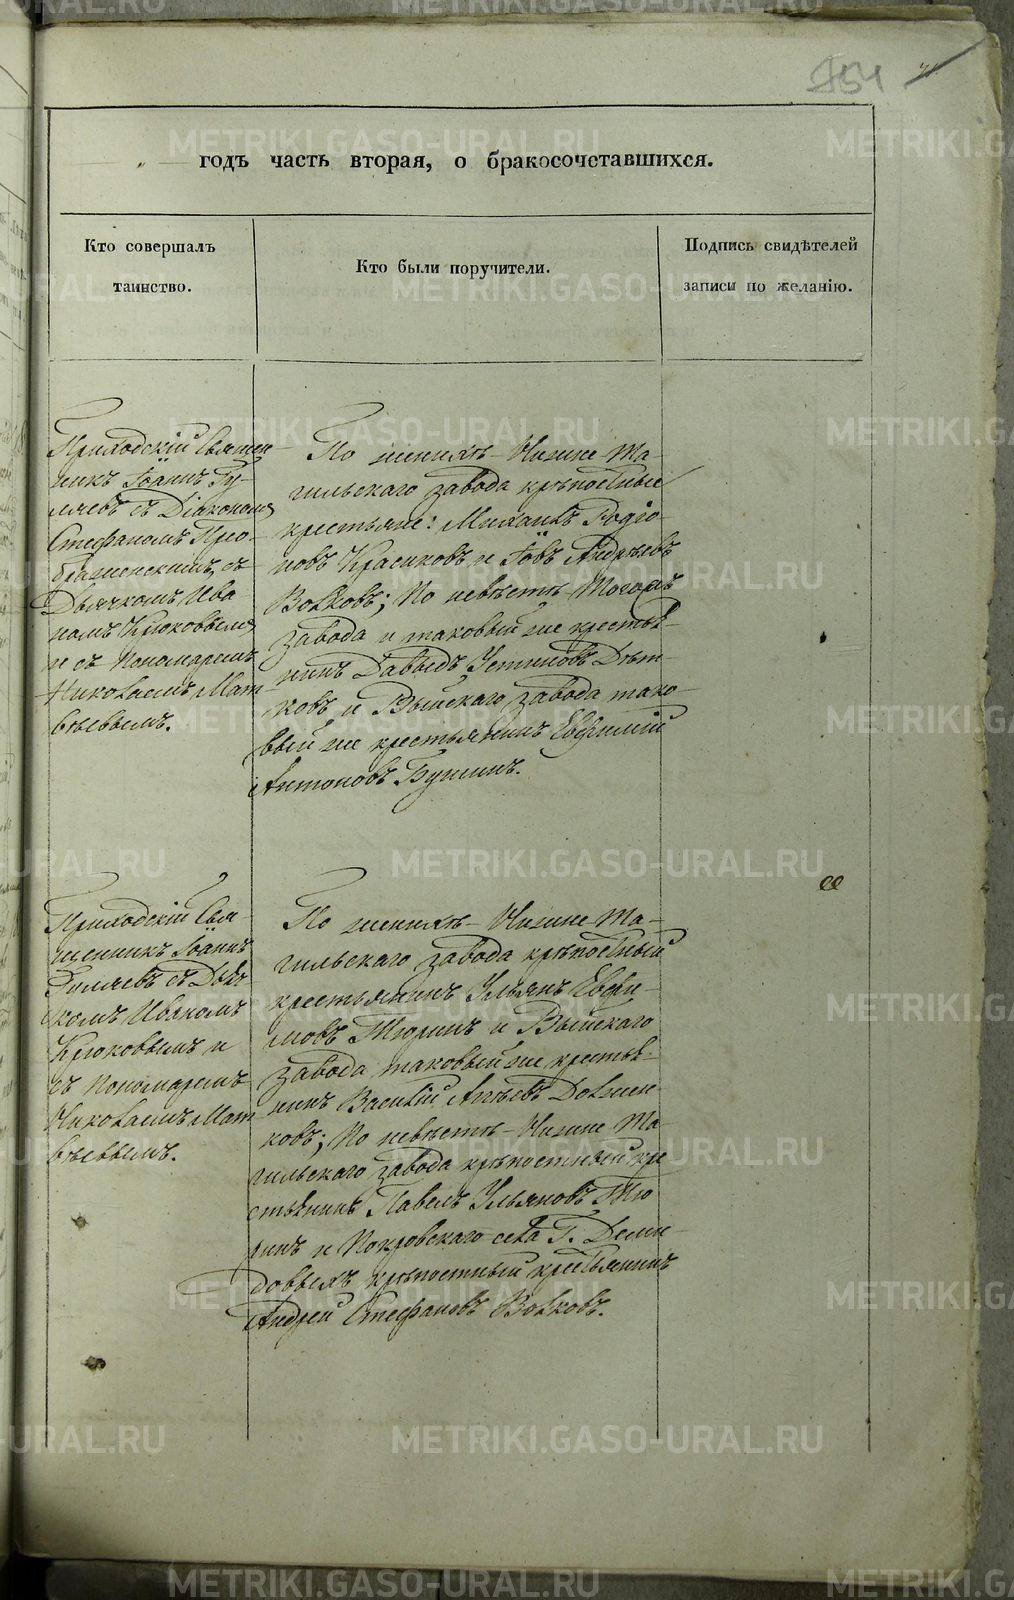 454
годъ часть вторая, о бракосочетавшихся.
Кто совершалъ
таинство.
Кто были поручители.
Подпись свидѣтелей
записи по желанію.
Приходскій Священ-
никъ Іоаннъ Гу-
ляевъ съ Діакономъ
Стефаномъ Прео-
браженскимъ, съ
Дьячкомъ Ива
номъ Крюковымъ
и съ Пономаремъ
Николаемъ Мат-
вѣевымъ.
По женихѣ - Нижне Та-
гильскаго завода крѣпостные
крестьяне: Михаилъ Родіо-
новъ Красиковъ и Іовъ Андреевъ
Волковъ; По невѣстѣ - Тогожъ
завода и таковый же крестья-
нинъ Давыдъ Устиновъ Дѣт-
ковъ и Выйскаго завода тако-
вый же крестьянинъ Евфимій
Антоновъ Бушинъ.
Приходскій Свя-
щенникъ Іоаннъ
Гуляевъ съ Дьяч
комъ Иваномъ
Крюковымъ и
съ Пономаремъ
Николаемъ Мат
вѣевымъ.
По женихѣ - Нижне Та-
гильскаго завода крѣпостный
крестьянинъ Ульянъ Евфи-
мовъ Тюринъ и Выйскаго
завода таковый же крестья-
нинъ Василій Должен-
ковъ; По невѣстѣ - Нижне Та-
гильскаго завода крѣпостный кре
стьянинъ Павелъ Ульяновъ Тю
ринъ и Покровскаго села Г. Деми-
довыхъ крѣпостный крестьянинъ
Андрей Стефановъ Волковъ.
METRIKI.GASO-URAL.RU